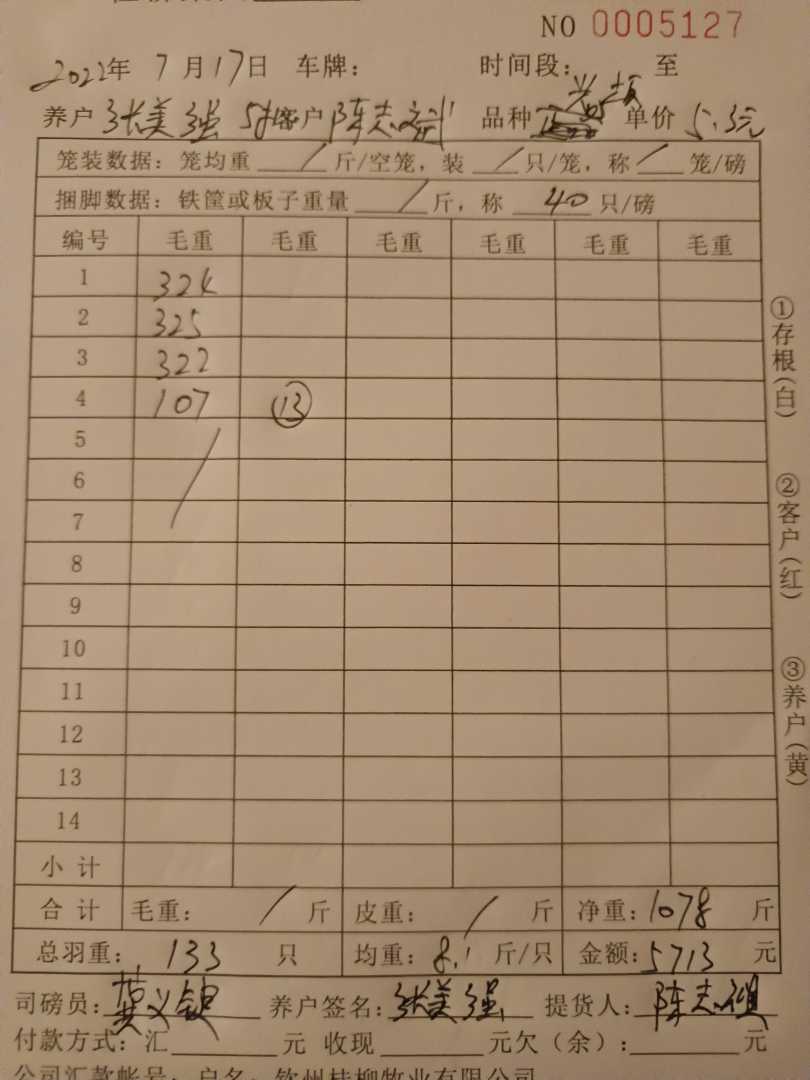 NO 0005127
2022年 7月17日 车牌: 时间段: 至
养户 张美强 客户 陈志 品种 单价 5.3元
笼装数据: 笼均重 / 斤/空笼, 装 / 只/笼, 称 / 笼/磅
捆脚数据: 铁筐或板子重量 / 斤, 称 40 只/磅
编号 毛重 毛重 毛重 毛重 毛重 毛重
1 324
2 325
3 322
4 107 ⑬
5 /
6
7
8
9
10
11
12
13
14
小计
合计 毛重: / 斤 皮重: / 斤 净重: 1078 斤
总羽重: 133 只 均重: 8.1 斤/只 金额: 5713 元
司磅员: 养户签名: 张美强 提货人: 陈志
付款方式: 汇 元 收现 元欠(余): 元
公司汇款帐号: 户名: 钦州桂柳牧业有限公司
①存根(白)
②客户(红)
③养户(黄)